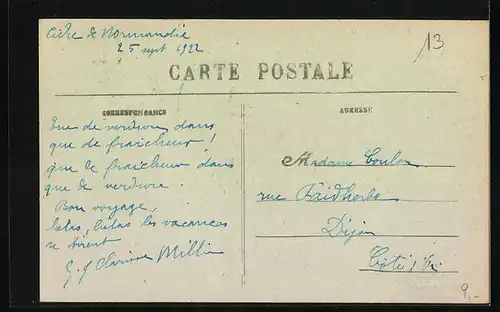 Cidre de Normandie
25 sept 1922
13
CARTE POSTALE
CORRESPONDANCE
ADRESSE
que de verdure dans
que de fraicheur!
que de fraicheur dans
que de verdure.
Bon voyage,
helas, helas les vacances
se tirent
G. et Clarisse Millin
Madame Coulon
rue Faidherbe
Dijon
Côte d'Or
9,-